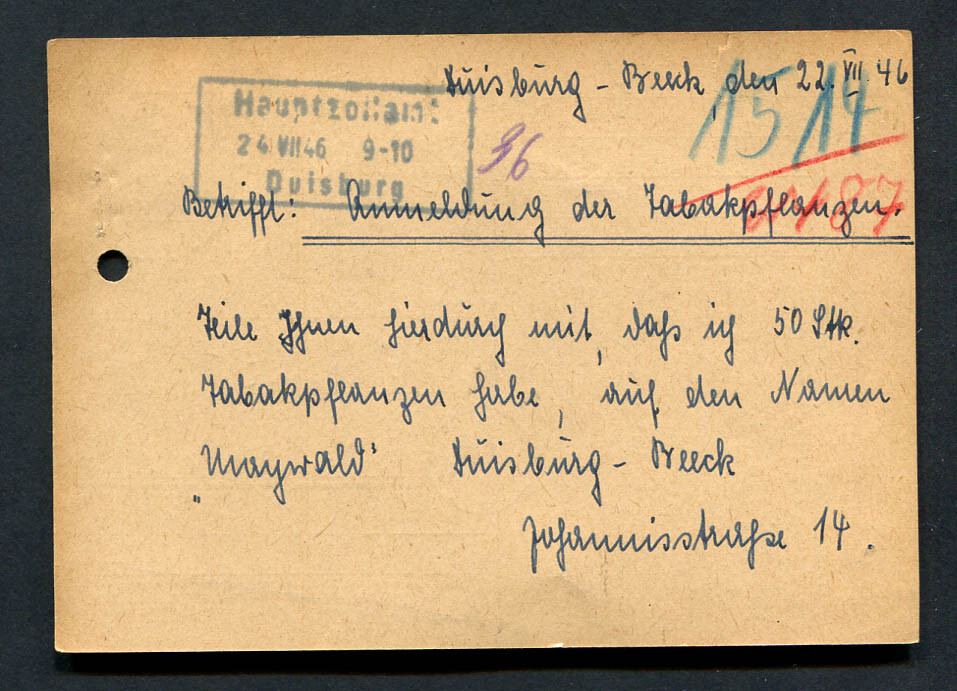 Duisburg - Beeck, den 22.VII.46
Hauptzollamt
24 VII 46 9-10
Duisburg
36
1514
Betrifft: Anmeldung der Tabakpflanzen.
Teile Ihnen hierdurch mit, daß ich 50 Stk.
Tabakpflanzen habe, auf den Namen
„Maywald“ Duisburg - Beeck
Johannisstraße 14.